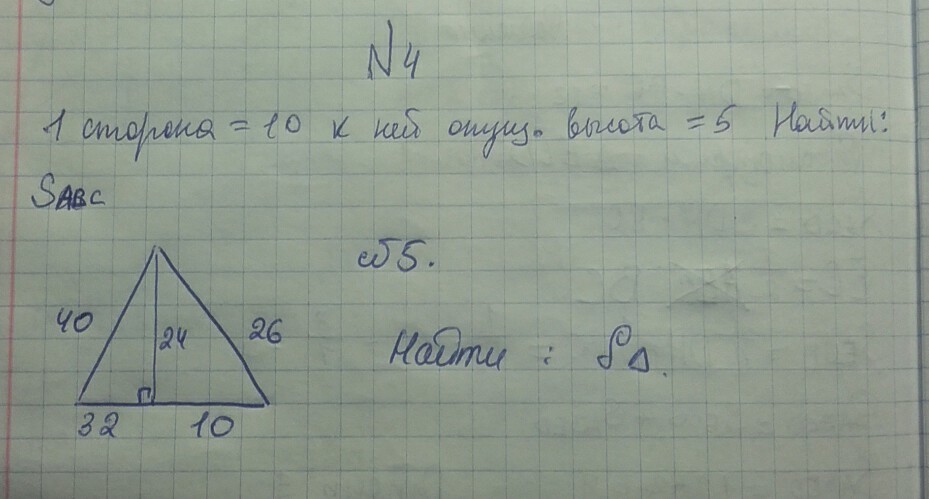 N4
1 сторона = 10 к ней опущ. высота = 5 Найти:
SABC
N5.
40
24
26
Найти : SΔ.
32 10